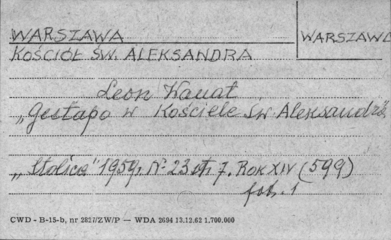 WARSZAWA
WARSZAWA
KOŚCIÓŁ ŚW. ALEKSANDRA
Leon Kanat
„Gestapo w Kościele Św Aleksandra
„Stolica" 1959r. Nr 23 str 7. ROK XIV (599)
fot. 1
CWD - B-15-b, nr 2827/ZW/P — WDA 2694 13.12.62 1.700.000